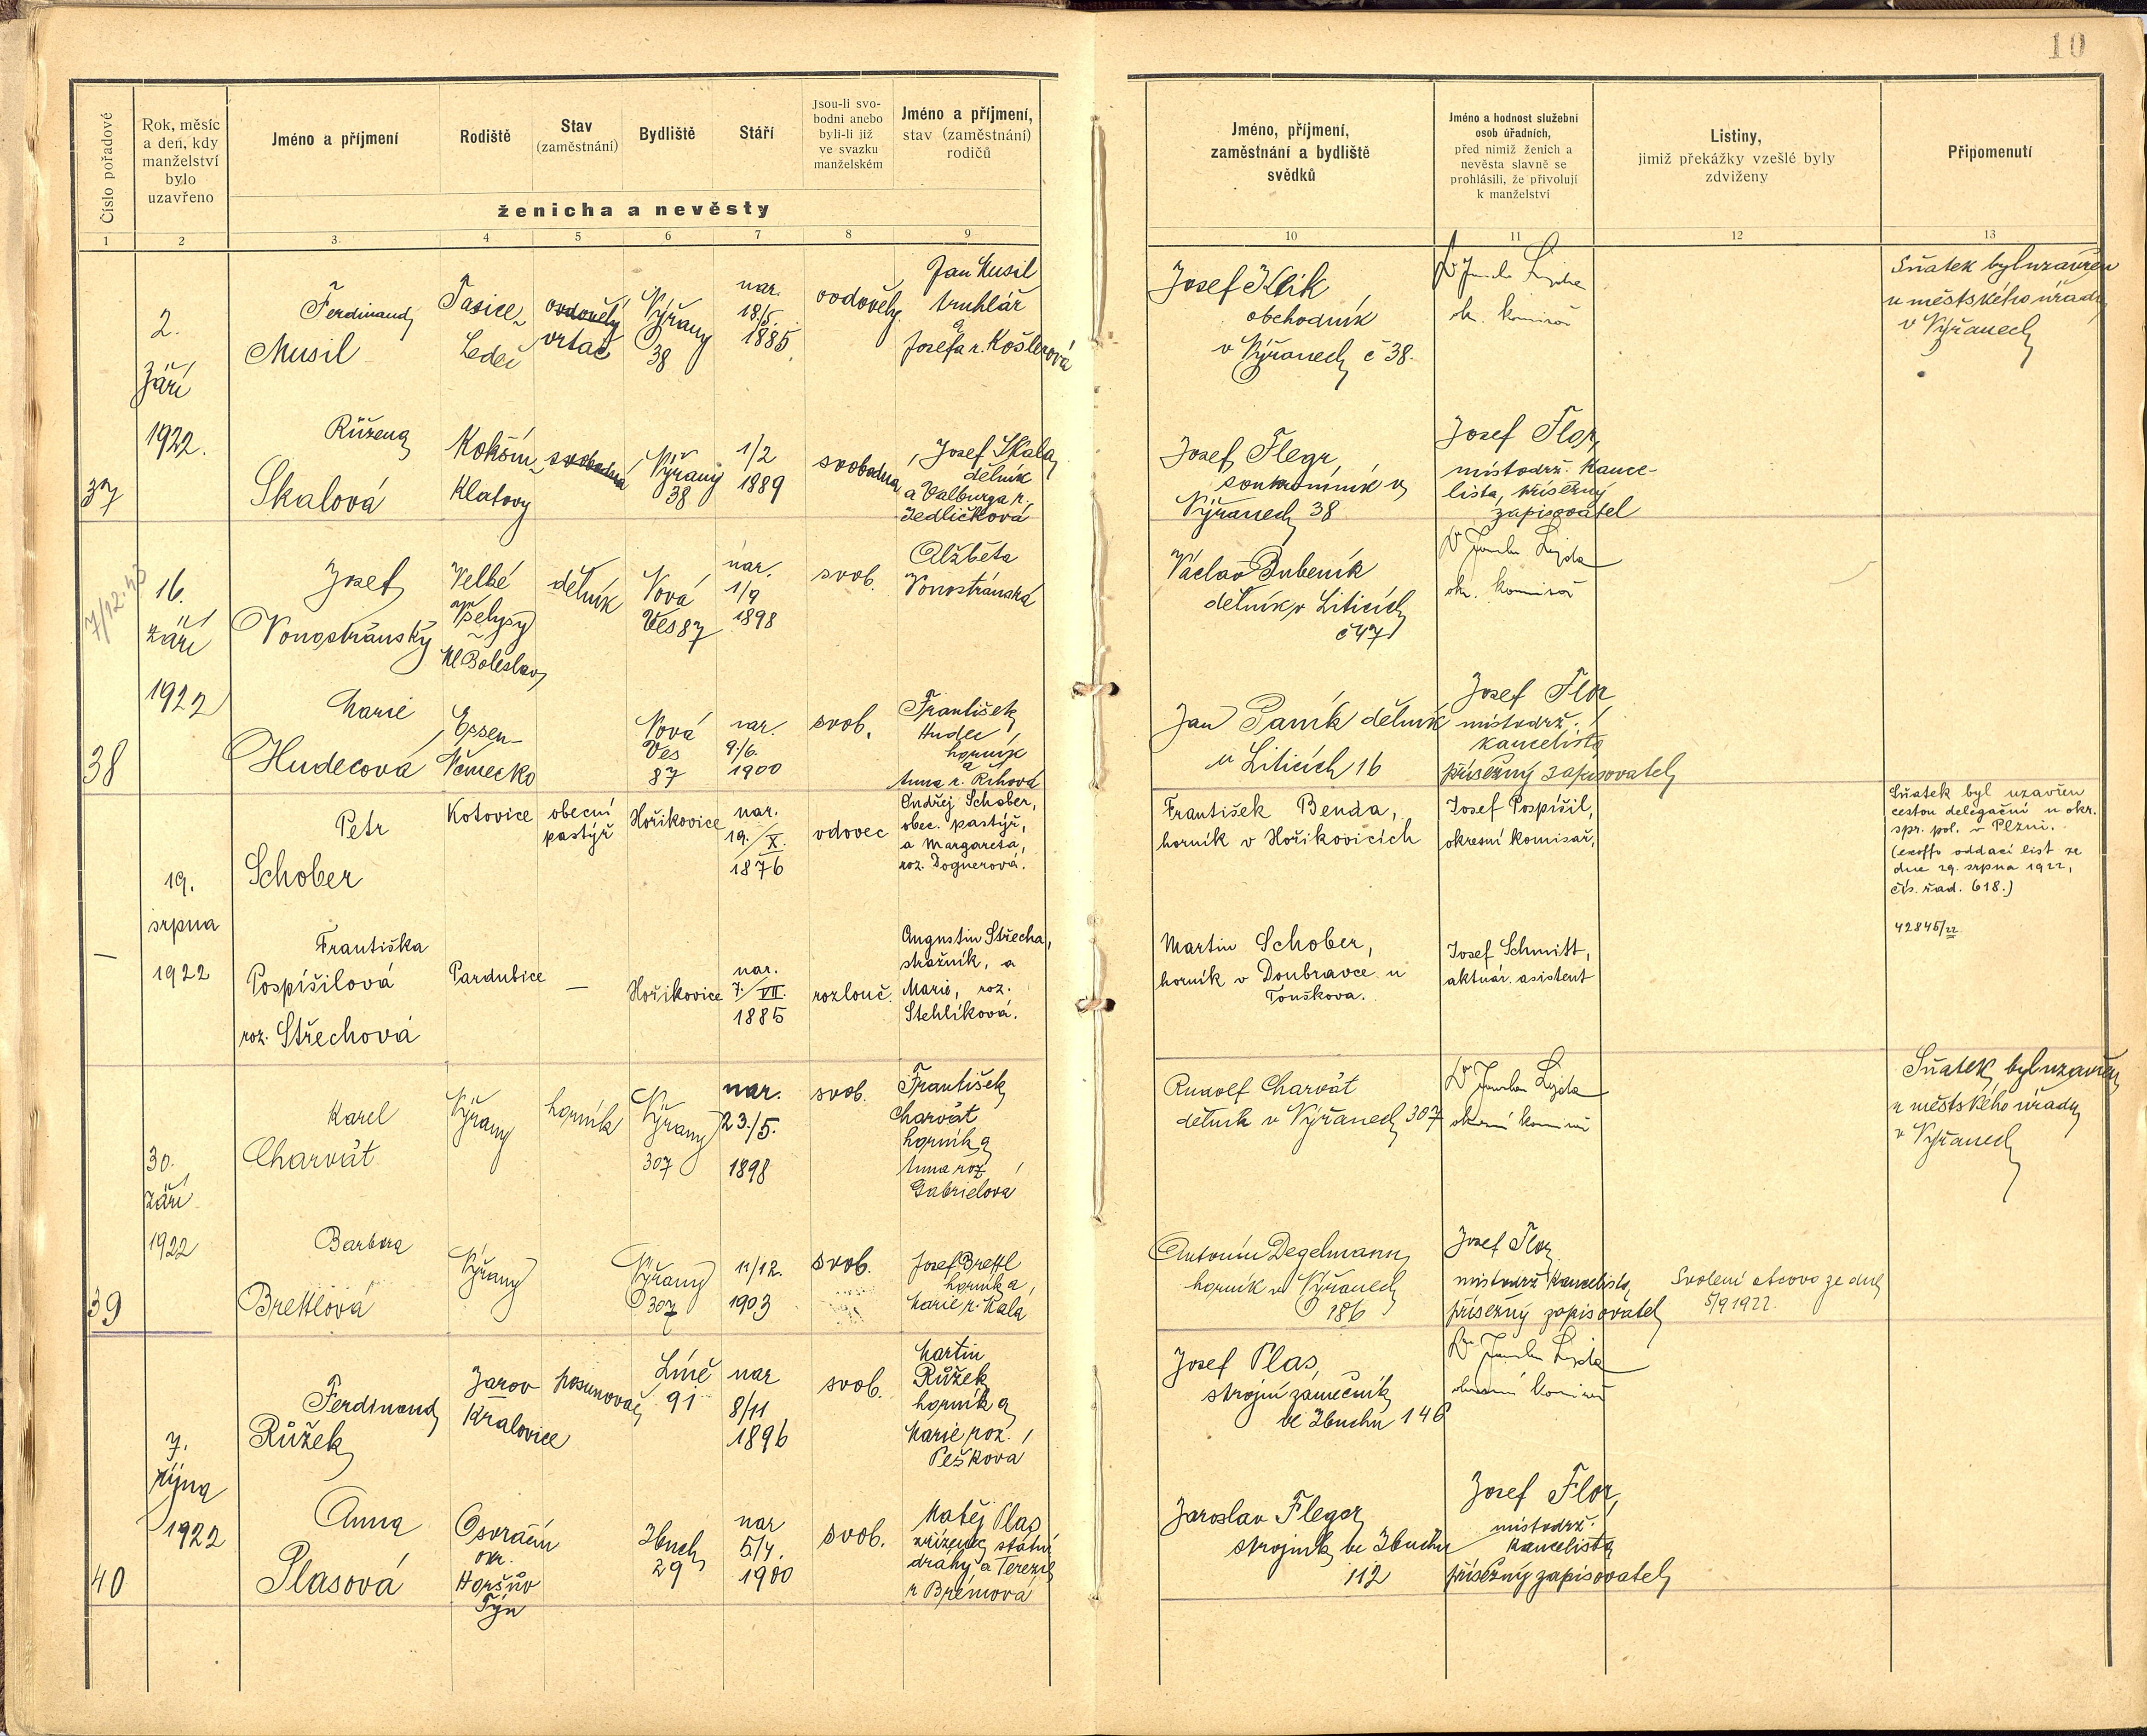 10
Číslo pořadové
Rok, měsíc
a den, kdy
manželství
bylo
uzavřeno
Jméno a příjmení
Rodiště
Stav
(zaměstnání)
Bydliště
Stáří
Jsou-li svo-
bodni anebo
byli-li již
ve svazku
manželském
Jméno a příjmení,
stav (zaměstnání)
rodičů
ženicha a nevěsty
Jméno, příjmení,
zaměstnání a bydliště
svědků
Jméno a hodnost služební
osob úřadních,
před nimiž ženich a
nevěsta slavně se
prohlásili, že přivolují
k manželství
Listiny,
jimiž překážky vzešlé byly
zdviženy
Připomenutí
1 2 3 4 5 6 7 8 9 10 11 12 13
37
2.
září
1922.
Ferdinand
Musil
Tasice
Ledeč
ovdovělý
vrtač
Výřany
38
nar.
18/5.
1885.
ovdovělý.
Jan Musil
truhlář
a
Josefa r. Košlerová
Josef Klik
obchodník
v Výřanech č 38.
ok. komisař
Sňatek byl uzavřen
u městského úřadu
v Výřanech
Růžena
Skalová
Kokšín
Klatovy
svobodná
Výřany
38
1/2
1889
svobodna
Josef Skala
dělník
a Valburga r.
Jedličková
Josef Flegr
soukromník v
Výřanech 38
Josef Flor,
místodrž. kance-
lista, přísežný
zapisovatel
7/12.43
38
16.
září
1922
Josef
Vonostránský
Velké
Všelysy
Ml Boleslav
dělník
Nová
Ves 87
nar.
1/9
1898
svob.
Alžběta
Vonostránská
Václav Dubeník
dělník v Liticích
č 47
ok. komisař
Marie
Hudecová
Essen
Německo
Nová
Ves
87
nar.
9./6.
1900
svob.
František
Hudec
horník
a
Anna r. Říhová
Jan Paník dělník
v Liticích 16
Josef Flor
místodrž.
kancelista
přísežný zapisovatel
—
19.
srpna
1922
Petr
Schober
Kotovice
obecní
pastýř
Hořikovice
nar.
19./X.
1876
vdovec
Ondřej Schober,
obec. pastýř,
a Margareta,
roz. Dognerová.
František Benda,
horník v Hořikovicích
Josef Pospíšil,
okresní komisař,
Sňatek byl uzavřen
cestou delegační u okr.
spr. pol. v Plzni.
(exoffo oddací list ze
dne 29. srpna 1922,
čís. řad. 618.)
42845/22
Františka
Pospíšilová
roz. Střechová
Pardubice
—
Hořikovice
nar.
7./VII.
1885
rozlouč.
Augustin Střecha,
stražník, a
Marie, roz.
Stehlíková.
Martin Schober,
horník v Doubravce u
Touškova.
Josef Schmitt,
aktuár. asistent
39
30.
září
1922
Karel
Charvát
Výřany
horník
Výřany
307
nar.
23./5.
1898
svob.
František
Charvát
horník a
Anna roz
Gabrielová
Rudolf Charvát
dělník v Výřanech 307
okresní komisař
Sňatek byl uzavřen
u městského úřadu
v Výřanech
Barbora
Brettlová
Výřany
Výřany
307
11/12.
1903
svob.
Josef Brettl
horník a
Marie r. Mala
Antonín Degelmann
horník v Výřanech
186
Josef Flor
místodrž kancelista,
přísežný zapisovatel
Svolení otcovo ze dne
5/9 1922.
40
7.
října
1922
Ferdinand
Růžek
Jarov
Kralovice
posunovač
Líně
91
nar
8/11
1896
svob.
Martin
Růžek
horník a
Marie roz.
Pešková
Josef Plas,
strojní zámečník
ve Zbuchu 146
okresní komisař
Anna
Plasová
Osvračín
okr.
Horšův
Týn
Zbuch
29
nar
5./4.
1900
svob.
Matěj Plas
zřízenec státní
dráhy a Terezie
r Brémová
Jaroslav Flegr
strojník ve Zbuchu
112
Josef Flor,
místodrž.
kancelista
přísežný zapisovatel